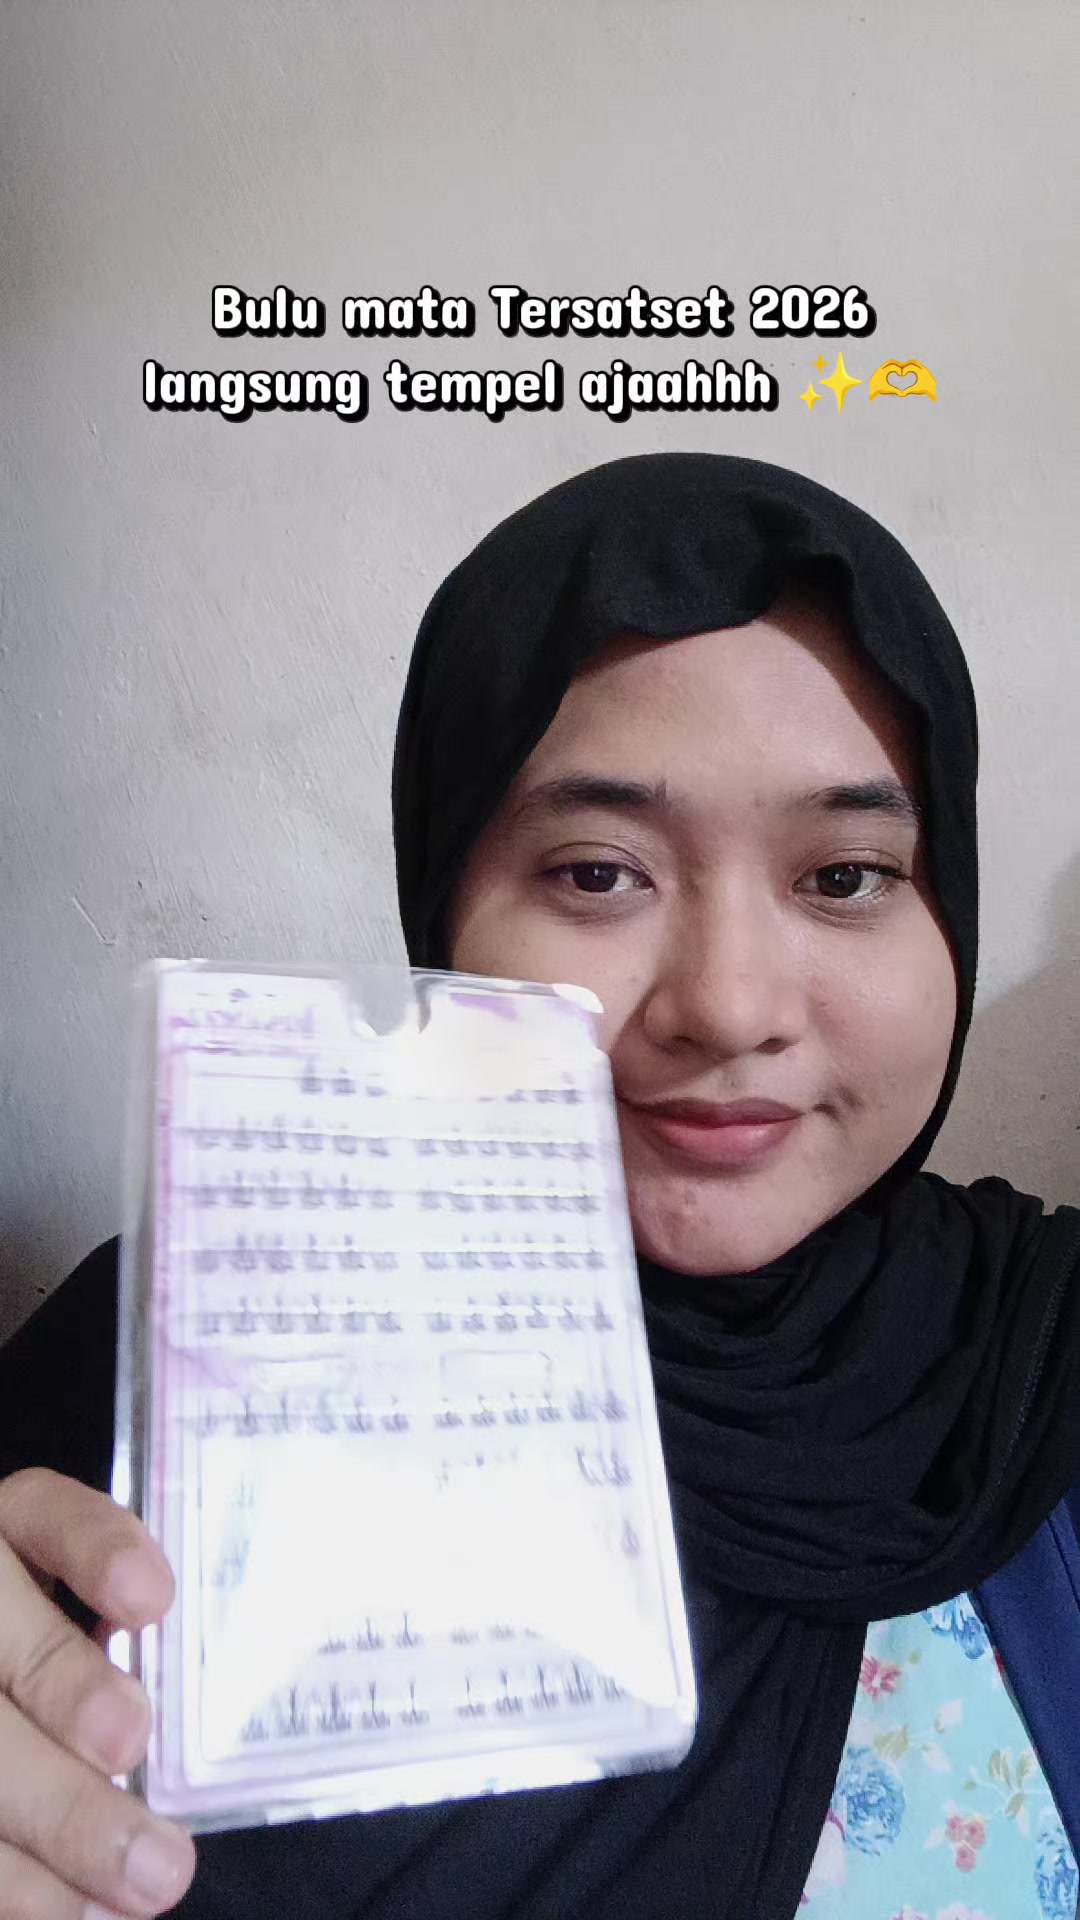 Bulu mata Tersatset 2026
langsung tempel ajaahhh ✨🫶